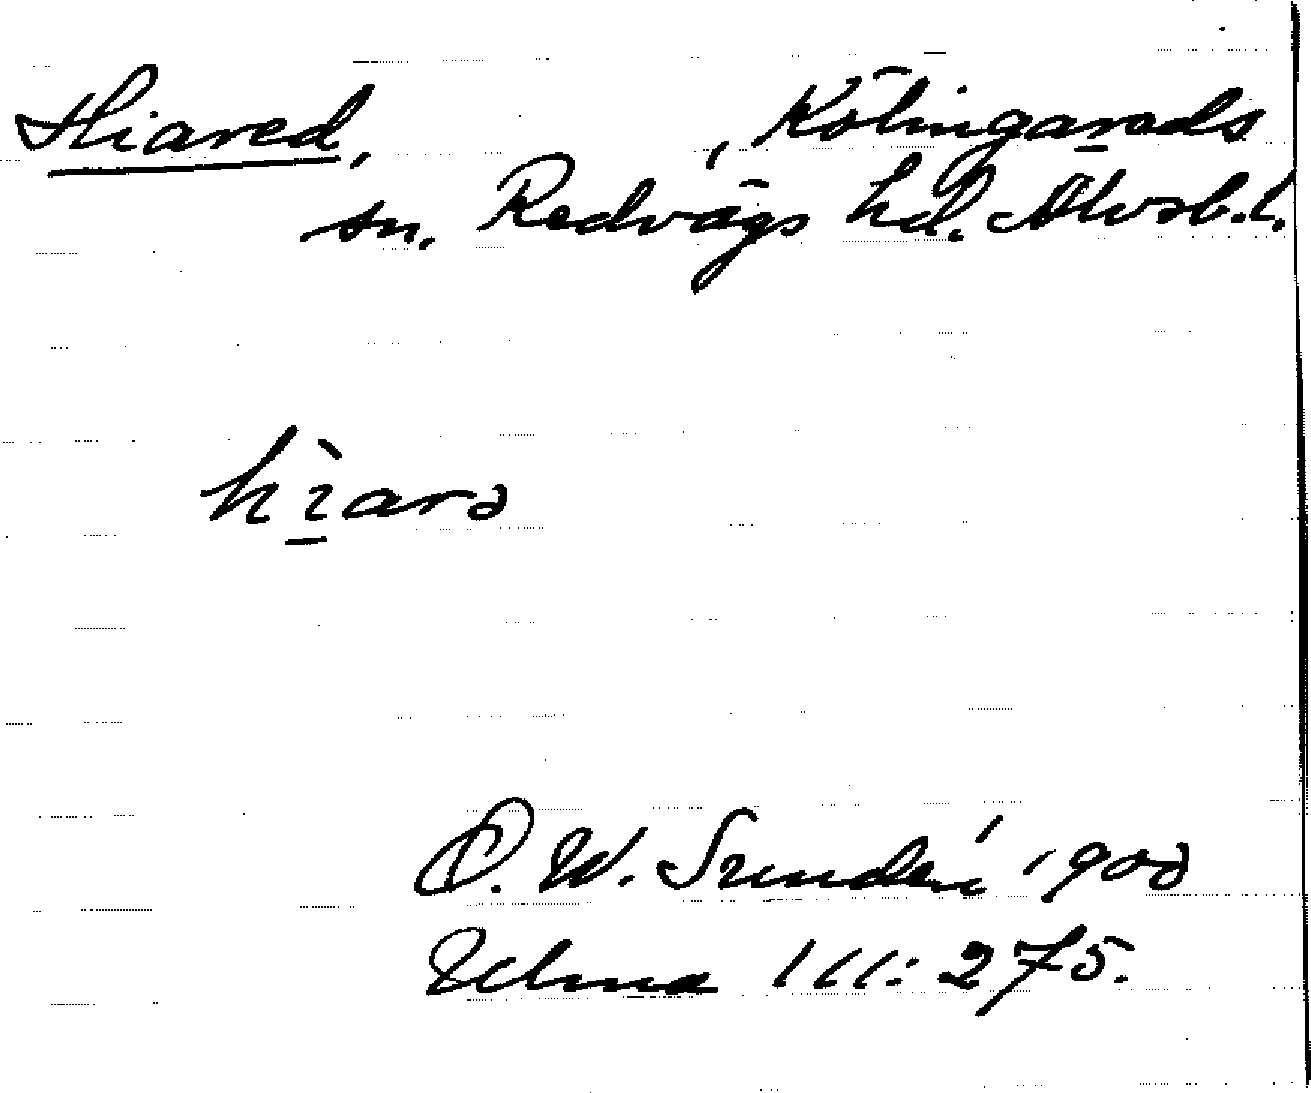 Hiared, , Kölingareds
sn. Redvägs hd. Älvsb. l.
hìarə
D. W. Sundén 1900
Ulma 111:275.